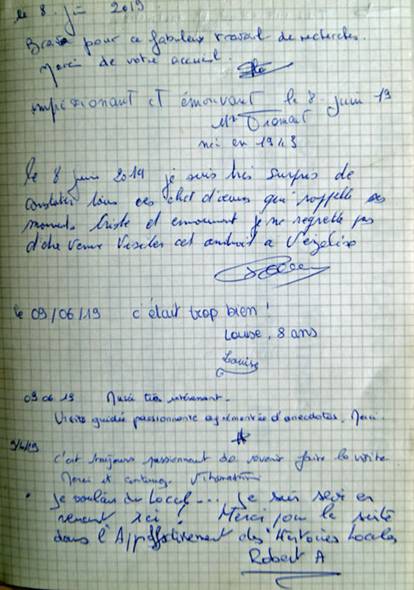 le 8 juin 2019
Bravo pour ce fabuleux travail de recherches.
Merci de votre accueil.
impressionnant et émouvant le 8 juin 19
Mr
né en 1943
le 8 juin 2019 je suis très surpris de
constater tous ces chef d'œuvres qui rappelle
moments triste et emouvant je ne regrette pas
d'être venue visiter cet endroit a
le 09/06/19 c'était trop bien !
Louise, 8 ans
Louise
09 06 19 Musée très intéressant.
Visite guidée passionnante agrémentée d'anecdotes. Merci
c'est toujours passionnant de revenir faire la visite
Merci et
Je voulais du Local... je suis servi en
venant ici ! Merci pour la suite
dans l'Approffondissement des Histoires Locales
Robert A